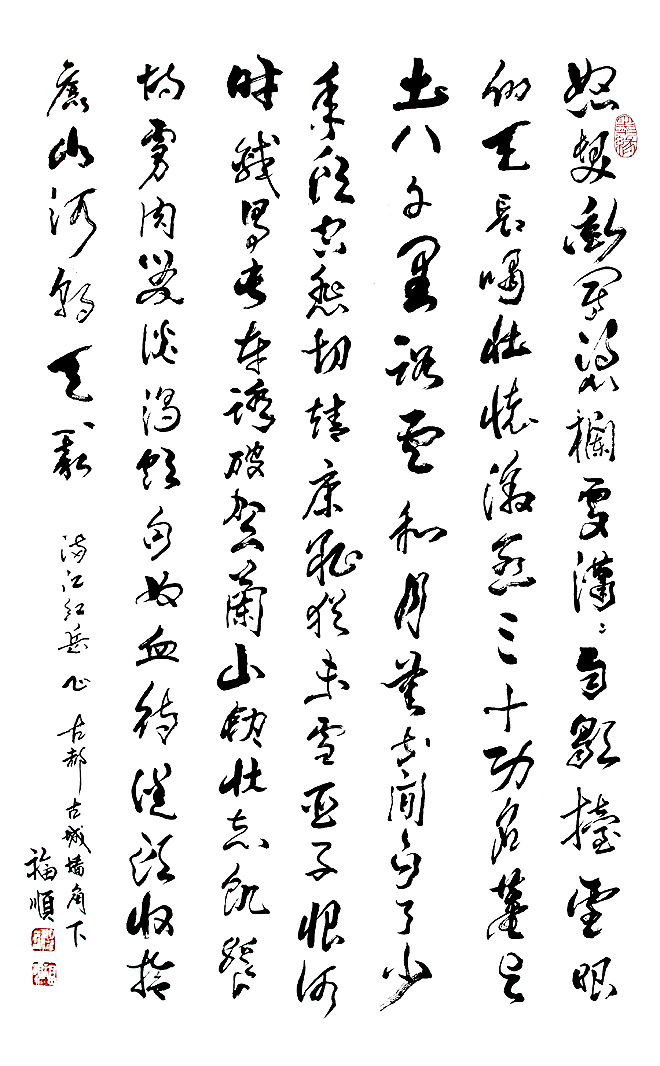 怒髮衝冠憑欄處瀟〻雨歇擡望眼
仰天長嘯壯懷激烈三十功名塵與
土八千里路雲和月莫等閒白了少
年頭空悲切靖康恥猶未雪臣子恨何
時滅駕長車踏破賀蘭山缺壯志飢餐
胡虜肉笑談渴飲匈奴血待從頭收拾
舊山河朝天闕
滿江紅岳飛 古都古城墻角下
福順